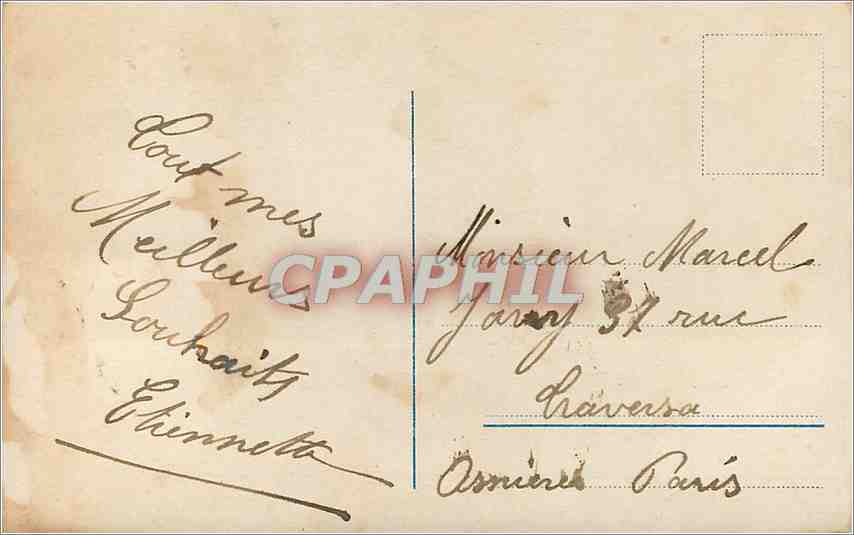 Tout mes
Meilleurs
Souhaits
Etiennette
CPAPHIL
Monsieur Marcel
Jamy 37 rue
Traversa
Asnieres Paris